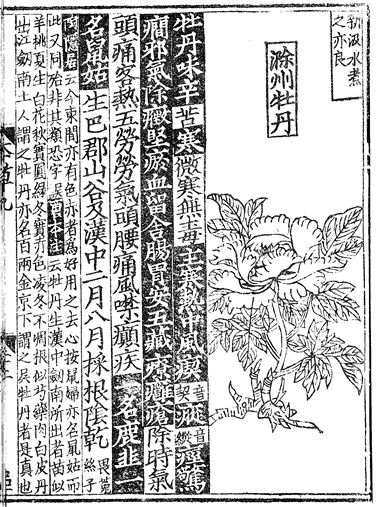 初汲水煮
之亦良
滁州牡丹
牡丹味辛苦寒微寒無毒主寒熱中風瘈音契瘲音縱痙驚
癎邪氣除癥堅瘀血留舍腸胃安五藏療癰瘡除時氣
頭痛客熱五勞勞氣頭腰痛風噤癲疾一名鹿韭一
名鼠姑生巴郡山谷及漢中二月八月採根陰乾畏菟絲子
陶隱居云今東間亦有色赤者為好用之去心按鼠婦亦名鼠姑而
此又同殆非其類恐字誤唐本注云牡丹生漢中劍南所出者苗似
羊桃夏生白花秋實圓綠冬實赤色凌冬不凋根似芍藥肉白皮丹
出江劍南土人謂之牡丹亦名百兩金京下謂之吳牡丹者是真也